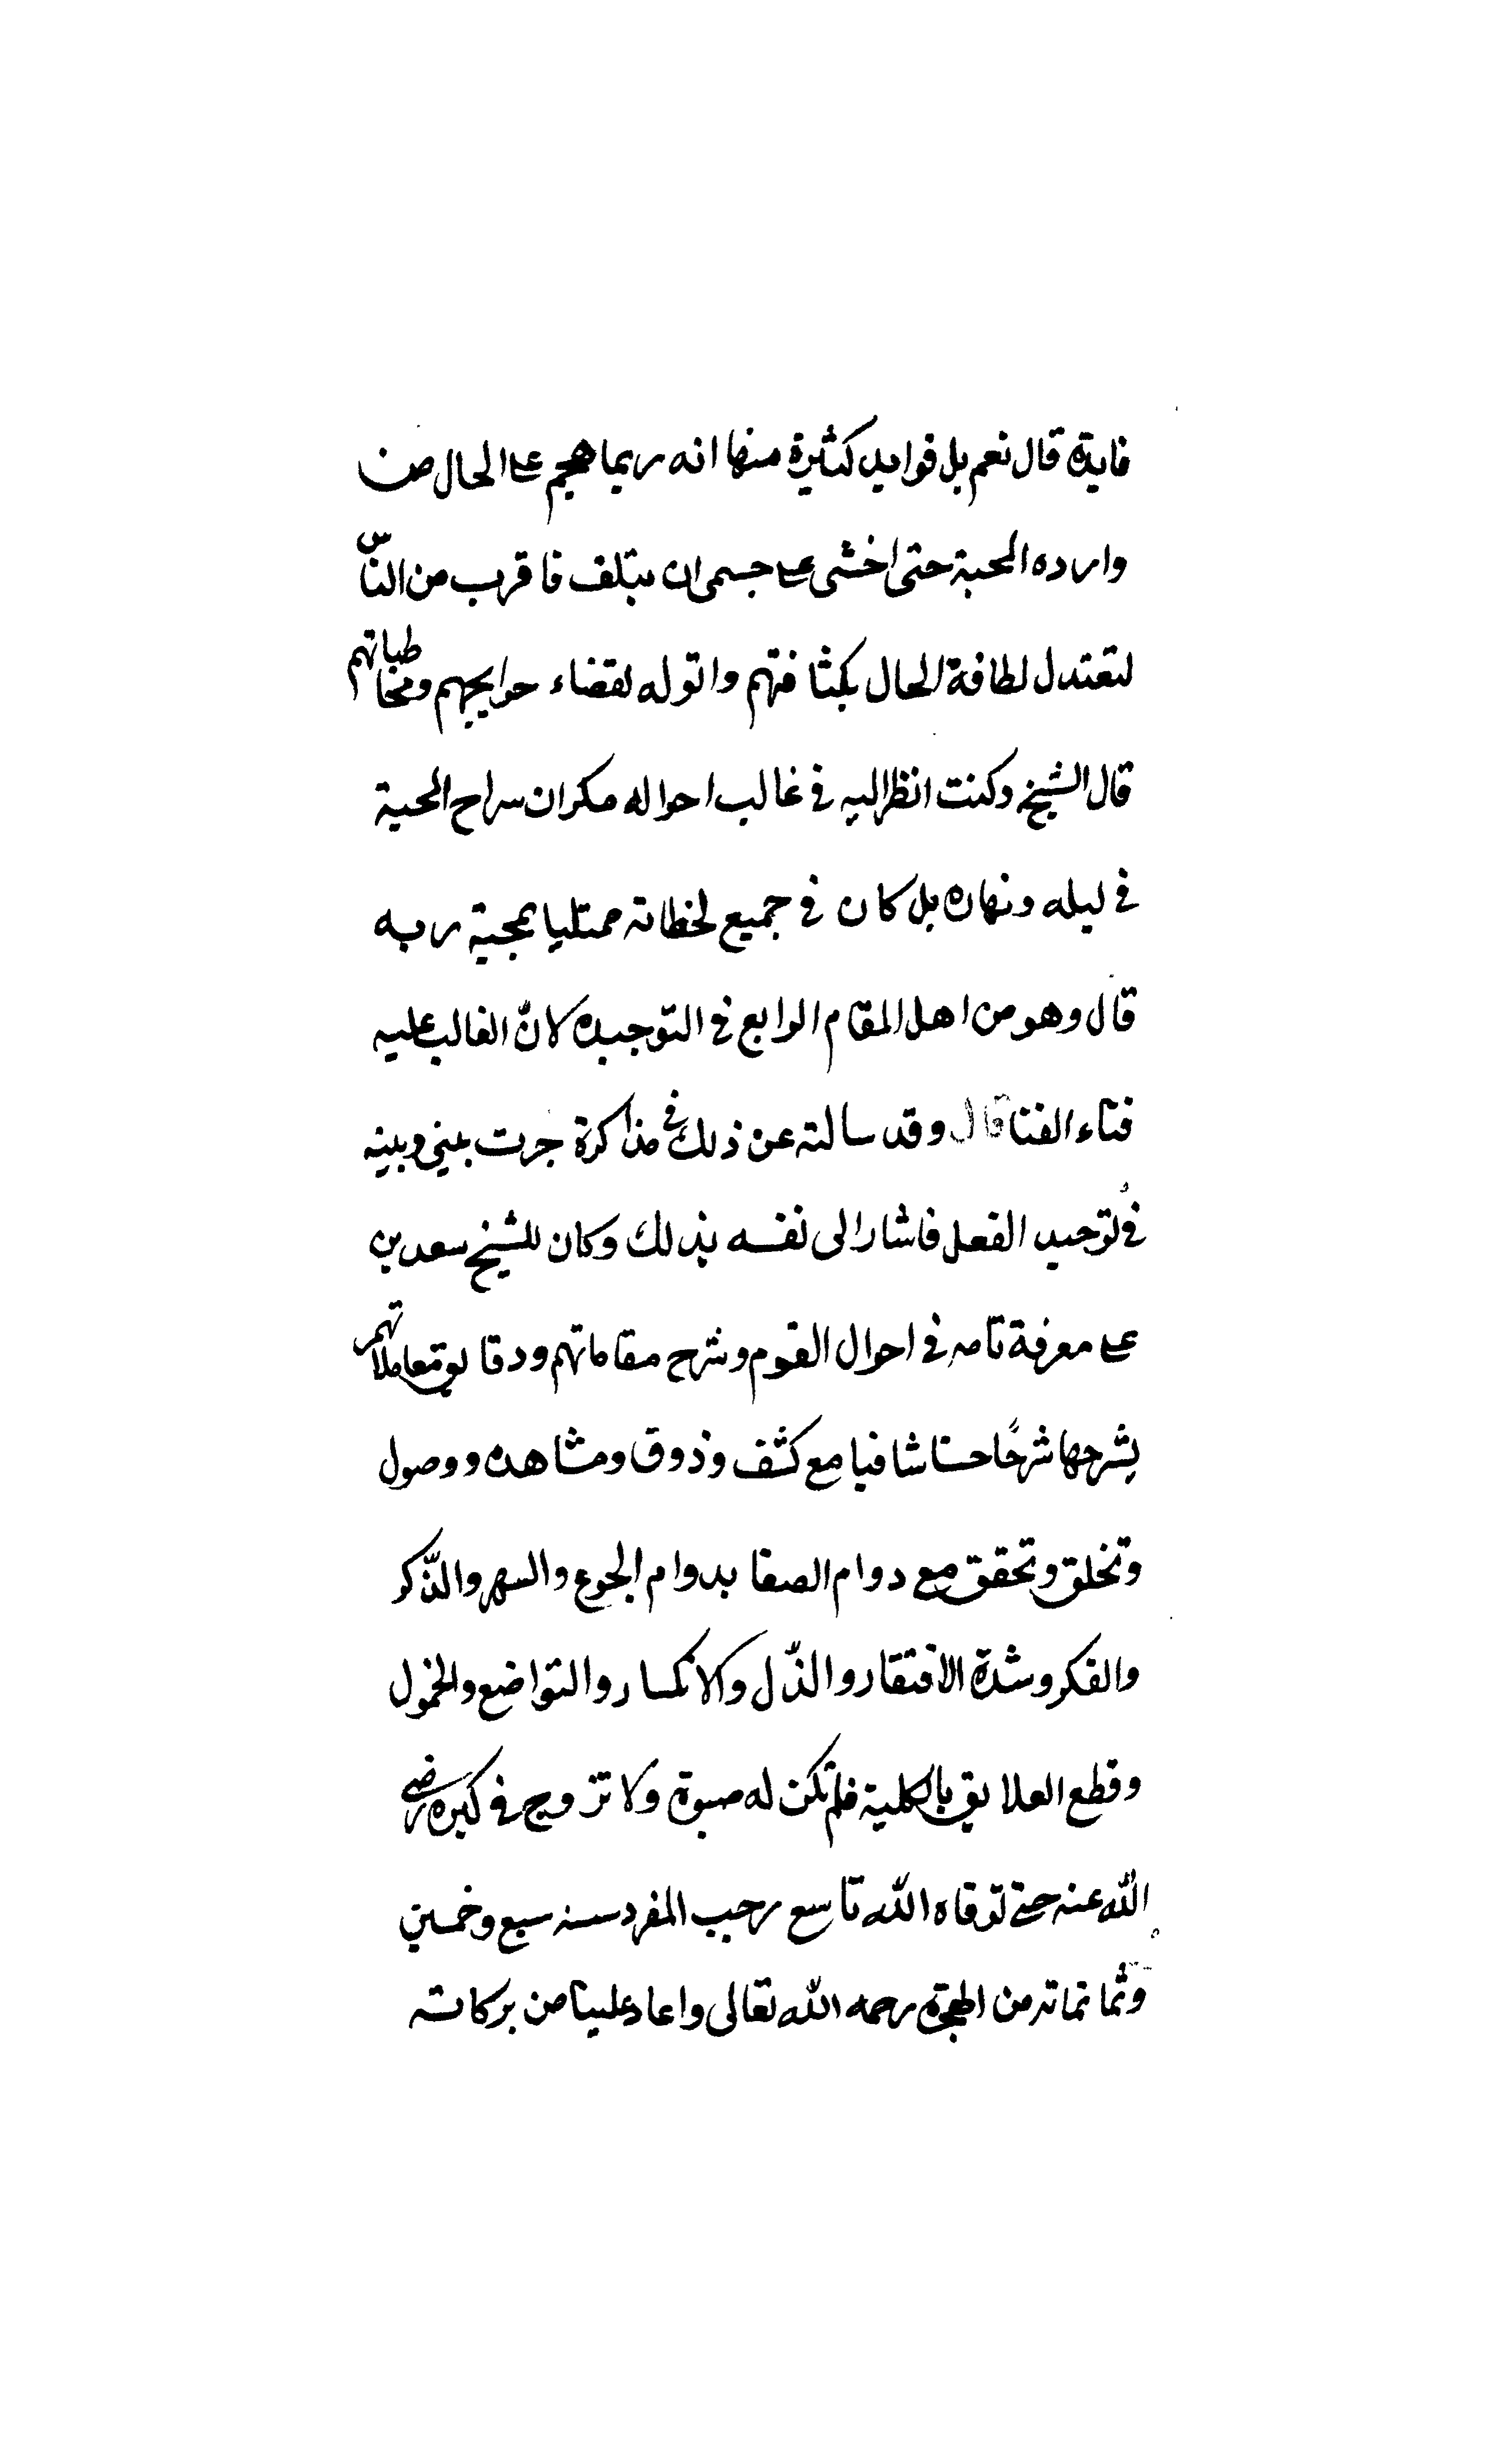 فايدة قال نعم بل فوايد كثيرة منها انه ربما هجم على الحال من
وارده المحبة حتى اخشى على جسمى ان يتلف فاقرب من النّاس
لتعتدل لطافة الحال بكثافتهم واتوله لقضاء حوايجهم ومخاطباتهم
قال الشيخ وكنت انظر اليه فى غالب احواله سكران براح المحبة
فى ليله ونهاره بل كان فى جميع لحظاته ممتليا بمحبة ربه
قال وهو من اهل المقام الرابع فى التوحيد لانّ الغالب عليه
فناء الفنا قال وقد سالته عن ذلك فى مذاكرة جرت بينى وبينه
فى توحيد الفعل فاشار الى نفسه بذلك وكان للشيخ سعد بن
على معرفة تامه فى احوال القوم وشرح مقاماتهم ودقايق معاملاتهم
يشرحها شرحًا حسنا شافيا مع كشف وذوق ومشاهده ووصول
وتخلق وتحقق مع دوام الصفا بدوام الجوع والسهر والذّكر
والفكر وشدة الافتقار والذّل والانكسار والتواضع والخمول
وقطع العلايق بالكلية فلم تكن له صبوة ولا تزوج فى كبره رضى
الله عنه حتى توفاه الله تاسع رجب المفرد سنه سبع وخمسين
وثمانمائه من الهجرة رحمه الله تعالى واعاد علينا من بركاته